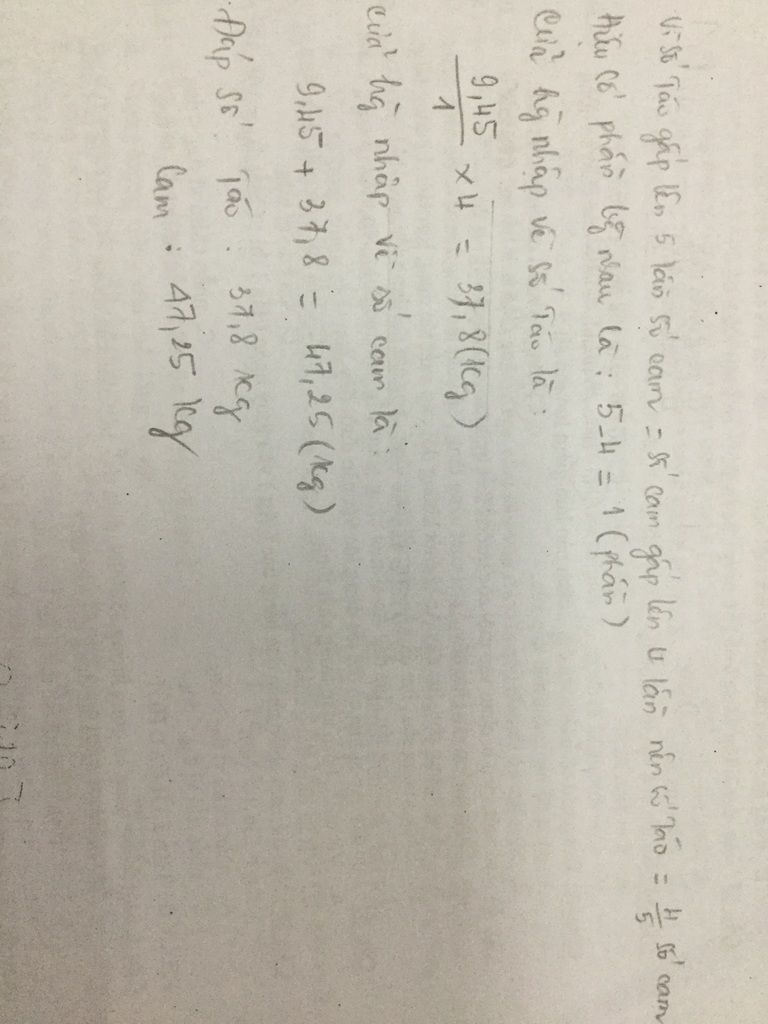 Vì số Táo gấp lên 5 lần số cam = số cam gấp lên 4 lần nên số táo = 4/5 số cam
Hiệu số phần bg nhau là : 5 - 4 = 1 (phần)
Cửa hg nhập về số Táo là :
9,45/1 x 4 = 37,8 (kg)
Cửa hg nhập về số cam là :
9,45 + 37,8 = 47,25 (kg)
Đáp số : Táo : 37,8 kg
Cam : 47,25 kg